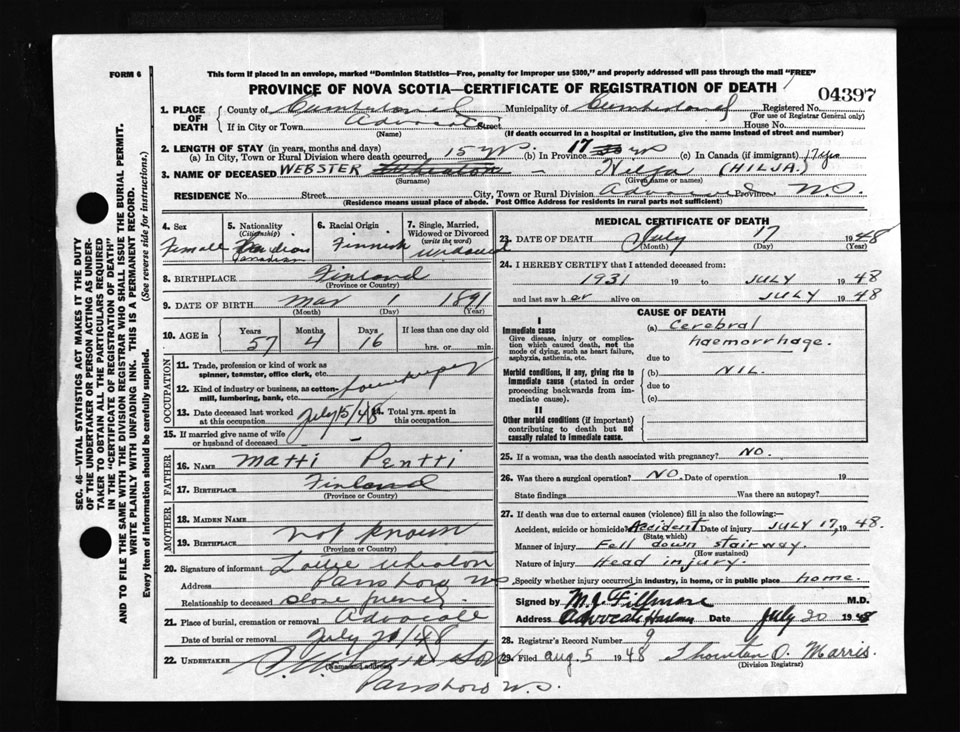 FORM 6
This form if placed in an envelope, marked "Dominion Statistics—Free, penalty for improper use $300," and properly addressed will pass through the mail "FREE"
PROVINCE OF NOVA SCOTIA—CERTIFICATE OF REGISTRATION OF DEATH
04397
1. PLACE OF DEATH
County of Cumberland Municipality of Cumberland Registered No.
(For use of Registrar General only)
If in City or Town Advocate Street House No.
(Name) (If death occurred in a hospital or institution, give the name instead of street and number)
2. LENGTH OF STAY (in years, months and days)
(a) In City, Town or Rural Division where death occurred 15 yrs (b) In Province 17 yrs (c) In Canada (if immigrant) 17 yrs
3. NAME OF DECEASED WEBSTER Wheaton - Hilja (HILJA)
(Surname) (Given name or names)
RESIDENCE No. Street City, Town or Rural Division Advocate Province N.S.
(Residence means usual place of abode. Post Office Address for residents in rural parts not sufficient)
4. Sex
Female
5. Nationality (Citizenship)
Canadian
6. Racial Origin
Finnish
7. Single, Married, Widowed or Divorced (write the word)
Widowed
8. BIRTHPLACE Finland
(Province or Country)
9. DATE OF BIRTH Mar 1 1891
(Month) (Day) (Year)
10. AGE in Years Months Days If less than one day old
57 4 16 hrs. or min.
OCCUPATION
11. Trade, profession or kind of work as spinner, teamster, office clerk, etc.
12. Kind of industry or business, as cotton-mill, lumbering, bank, etc. housekeeper
13. Date deceased last worked at this occupation July 15/48
14. Total yrs. spent in this occupation
15. If married give name of wife or husband of deceased -
FATHER
16. NAME Matti Pentti
17. BIRTHPLACE Finland
(Province or Country)
MOTHER
18. MAIDEN NAME
19. BIRTHPLACE not known
(Province or Country)
20. Signature of informant Wheaton
Address Parrsboro NS
Relationship to deceased close friend
21. Place of burial, cremation or removal Advocate
Date of burial or removal July 20/48
22. UNDERTAKER
(Name and address)
Parrsboro N.S.
MEDICAL CERTIFICATE OF DEATH
23. DATE OF DEATH July 17 1948
(Month) (Day) (Year)
24. I HEREBY CERTIFY that I attended deceased from:
1931 19 to JULY 1948
and last saw her alive on JULY 1948
CAUSE OF DEATH
I
Immediate cause
Give disease, injury or complication which caused death, not the mode of dying, such as heart failure, asphyxia, asthenia, etc.
(a) Cerebral haemorrhage.
due to
Morbid conditions, if any, giving rise to immediate cause (stated in order proceeding backwards from immediate cause).
(b) NIL.
due to
(c)
II
Other morbid conditions (if important) contributing to death but not causally related to immediate cause.
25. If a woman, was the death associated with pregnancy? NO.
26. Was there a surgical operation? NO. Date of operation 19
State findings Was there an autopsy?
27. If death was due to external causes (violence) fill in also the following:—
Accident, suicide or homicide? Accident Date of injury JULY 17, 1948.
(State which)
Manner of injury Fell down stairway.
(How sustained)
Nature of injury Head injury.
Specify whether injury occurred in industry, in home, or in public place home.
Signed by M.J. Fillmore M.D.
Address Advocate Harbour Date July 20 1948
28. Registrar's Record Number 9
29. Filed Aug. 5 1948 Thornton O. Morris.
(Division Registrar)
SEC. 46—VITAL STATISTICS ACT MAKES IT THE DUTY
OF THE UNDERTAKER OR PERSON ACTING AS UNDER-
TAKER TO OBTAIN ALL THE PARTICULARS REQUIRED
IN THE "CERTIFICATE OF REGISTRATION OF DEATH"
AND TO FILE THE SAME WITH THE DIVISION REGISTRAR WHO SHALL ISSUE THE BURIAL PERMIT.
WRITE PLAINLY WITH UNFADING INK. THIS IS A PERMANENT RECORD.
Every item of information should be carefully supplied. (See reverse side for instructions.)